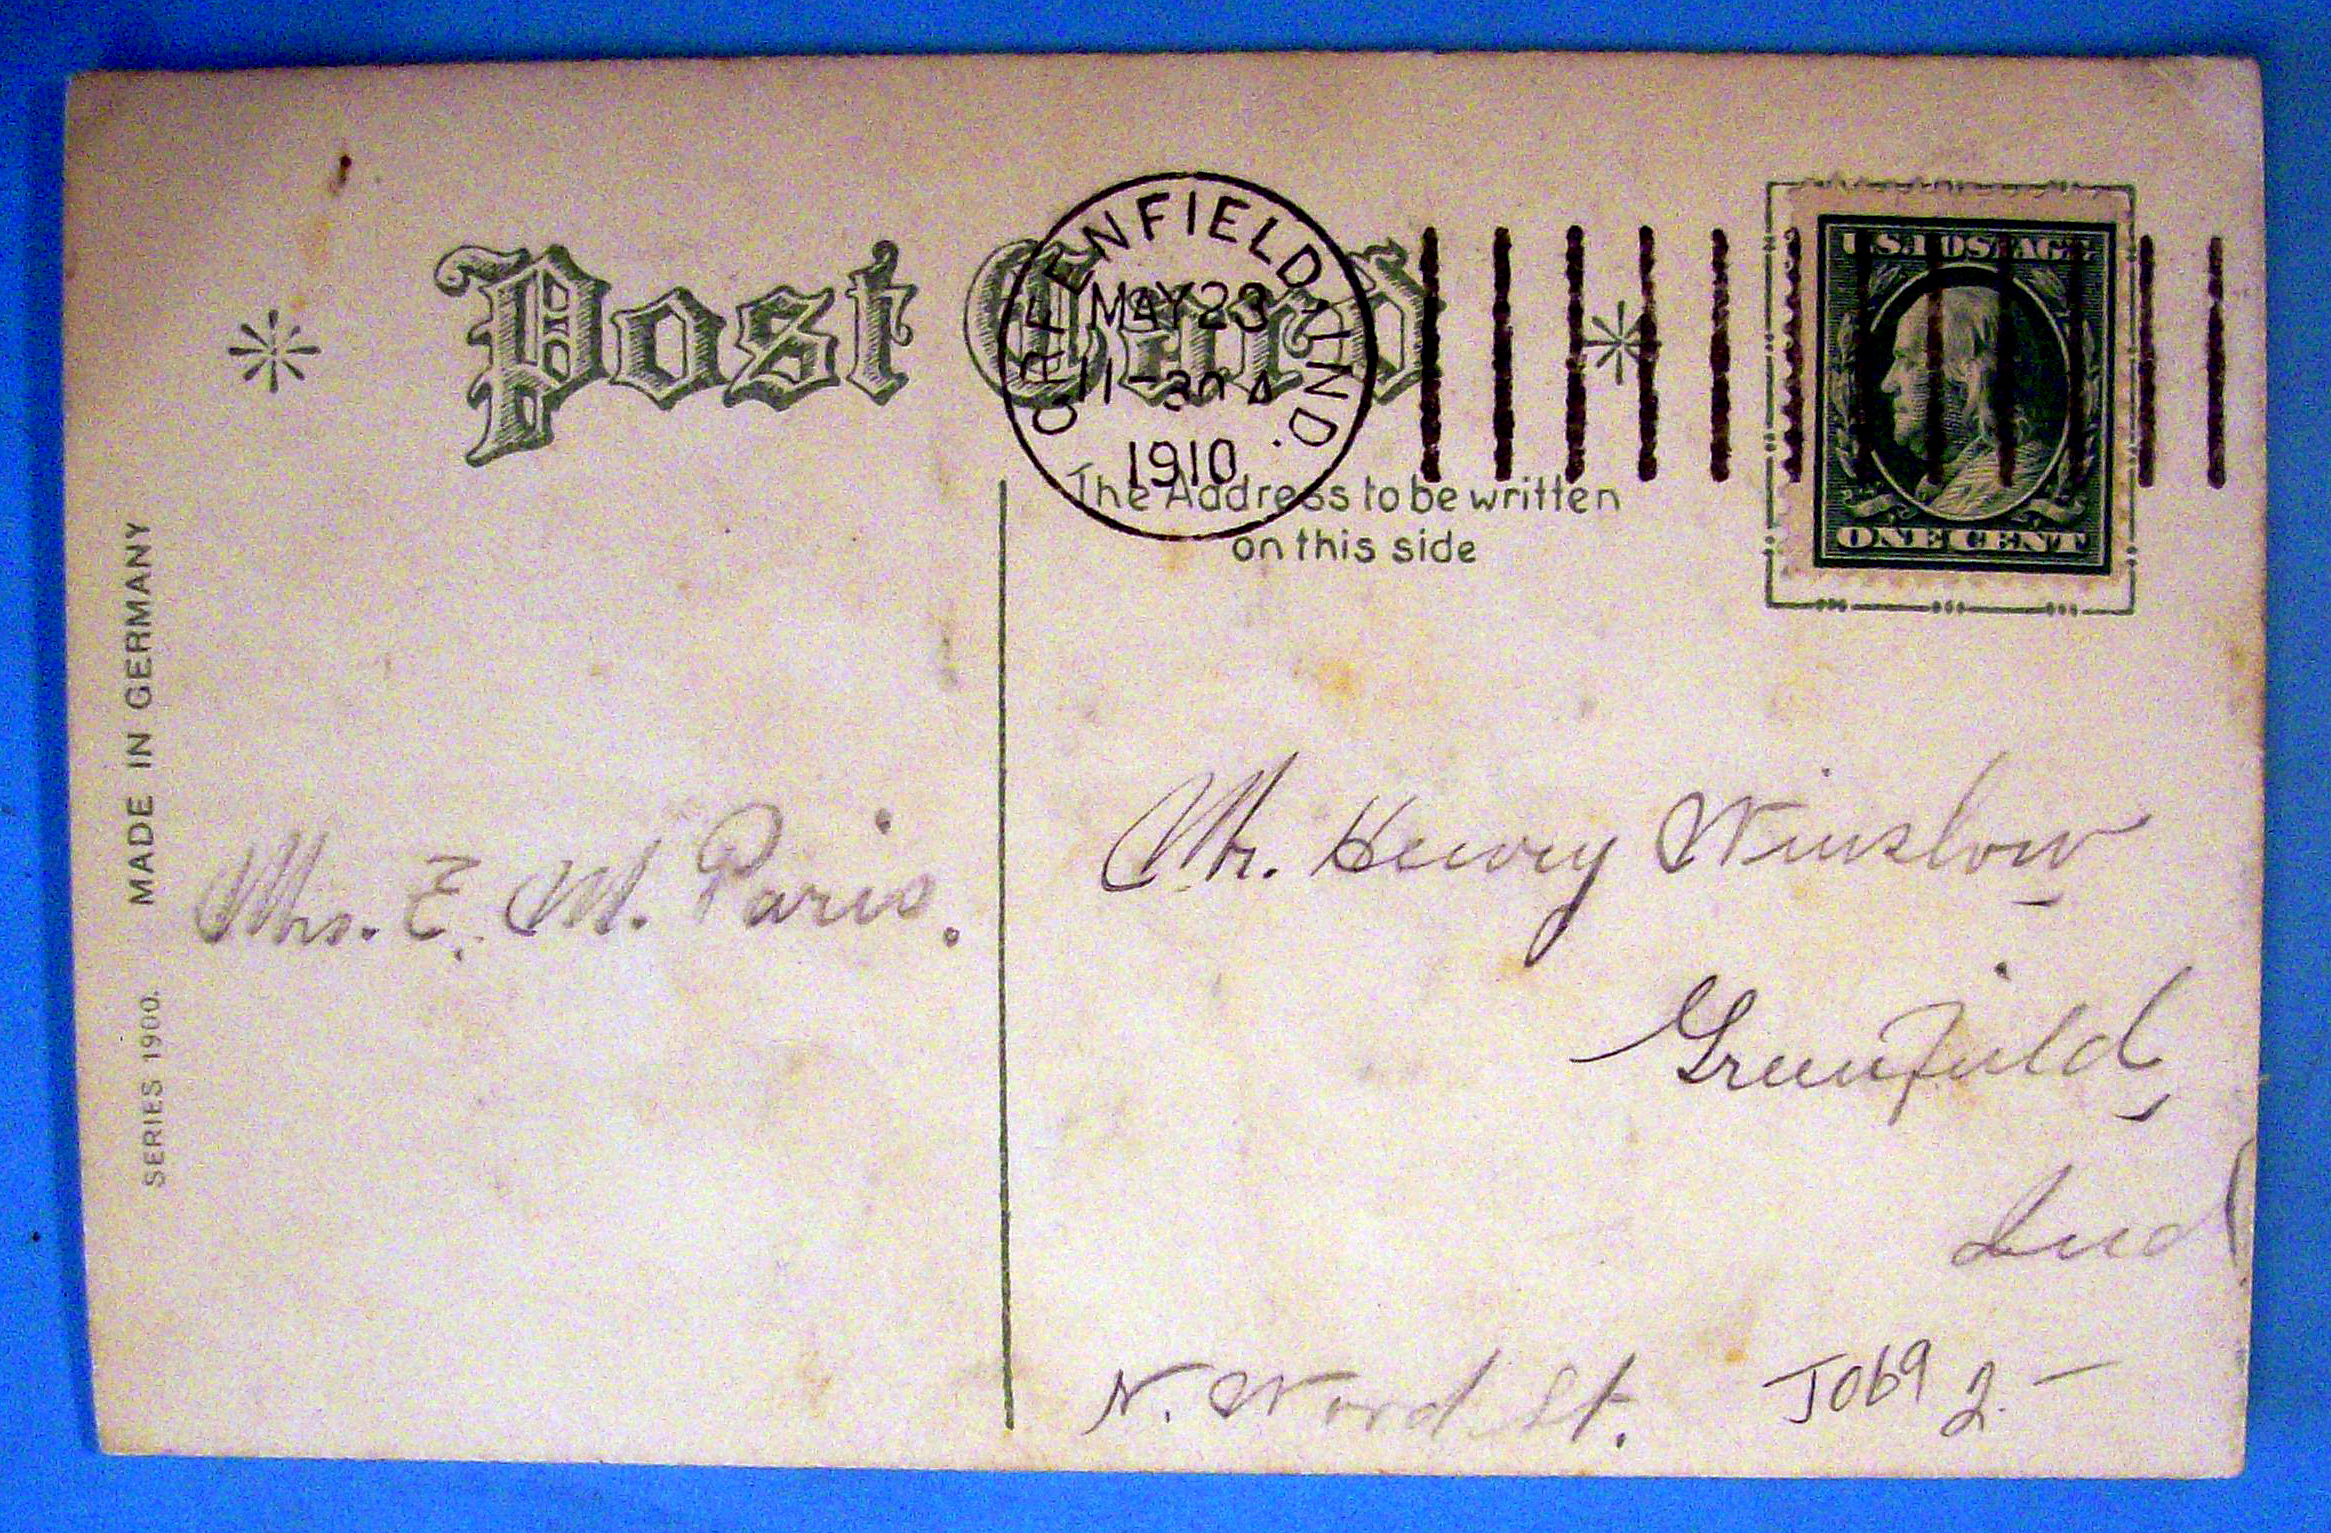 Post Card
GREENFIELD, IND.
MAY 23
11-30 A
1910
U.S. POSTAGE
ONE CENT
The Address to be written
on this side
MADE IN GERMANY
SERIES 1900.
Mrs. E. M. Paris.
Mr. Henry Winslow
Greenfield,
Ind
N. Wood St.
J069 2.–